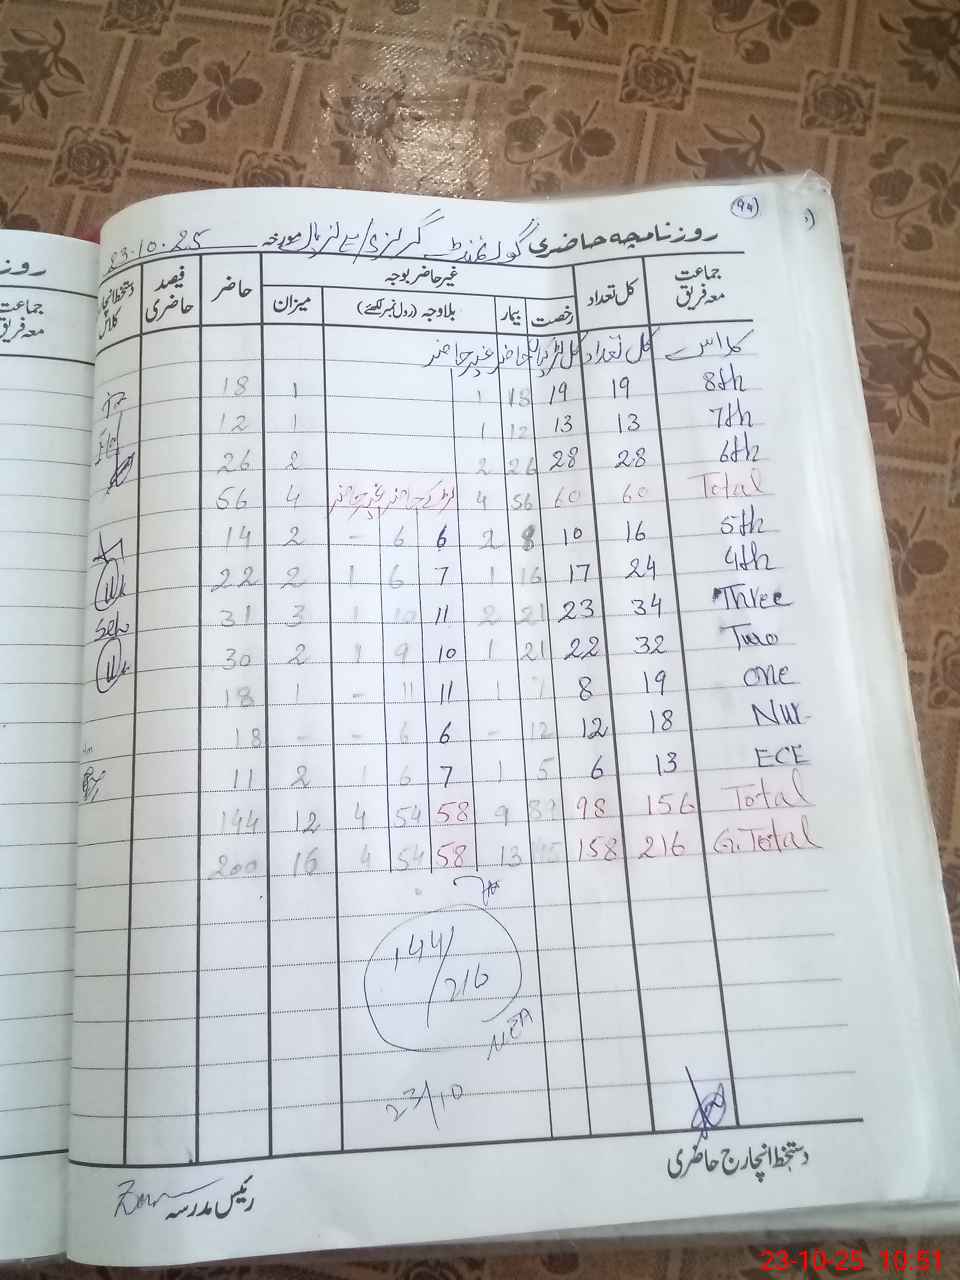 94
روزنامچہ حاضری گورنمنٹ گرلز مورخہ 23.10.25
جماعت معہ فریق کل تعداد غیر حاضر بوجہ حاضر فیصد حاضری دستخط انچارج کلاس
رخصت بیمار بلاوجہ (رول نمبر لکھئے) میزان
کلاس کل تعداد کل حاضر غیر حاضر
8th 19 19 18 1 1 18
7th 13 13 12 1 1 12
6th 28 28 26 2 2 26
Total 60 60 56 4 حاضر غیر حاضر 4 56
5th 16 10 8 2 6 6 - 2 14
4th 24 17 16 1 7 6 1 2 22
Three 34 23 21 2 11 10 1 3 31
Two 32 22 21 1 10 9 1 2 30
One 19 8 7 1 11 11 - 1 18
Nur 18 12 12 - 6 6 - - 18
ECE 13 6 5 1 7 6 1 2 11
Total 156 98 89 9 58 54 4 12 144
G.Total 216 158 145 13 58 54 4 16 200
144/216
MEA
23/10
دستخط انچارج حاضری
رئیس مدرسہ
روز
جماعت
معہ فریق
23-10-25 10:51